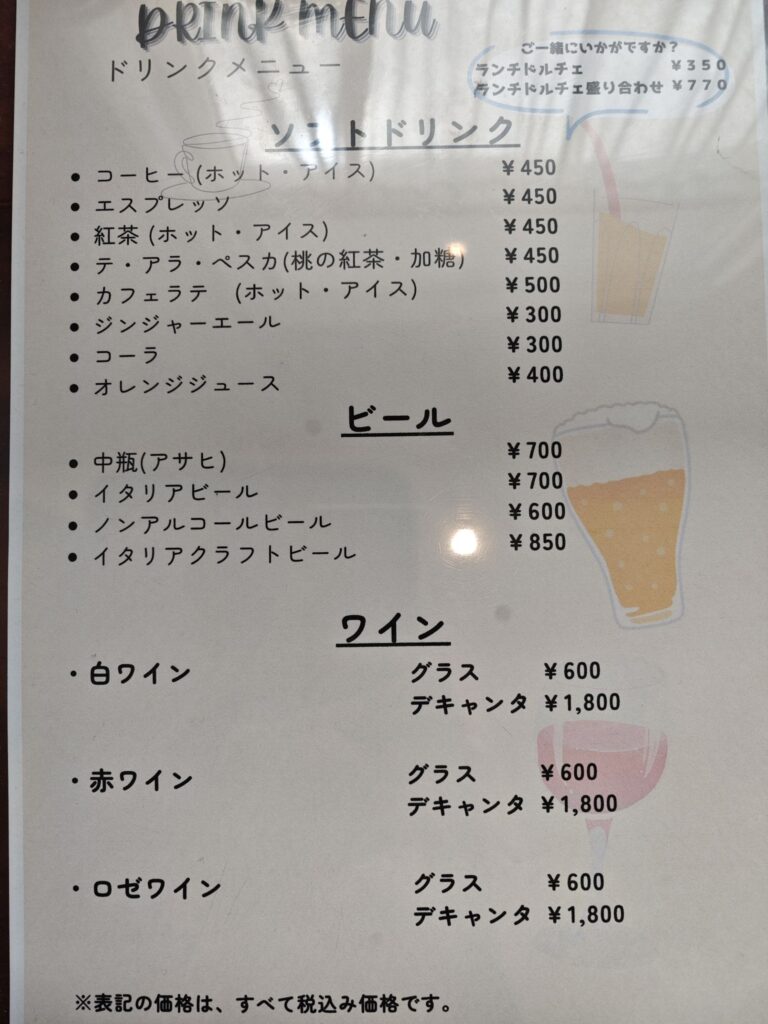 DRINK MENU
ドリンクメニュー
ご一緒にいかがですか？
ランチドルチェ ￥３５０
ランチドルチェ盛り合わせ ￥７７０
ソフトドリンク
• コーヒー (ホット・アイス) ¥450
• エスプレッソ ¥450
• 紅茶 (ホット・アイス) ¥450
• テ・アラ・ペスカ(桃の紅茶・加糖) ¥450
• カフェラテ (ホット・アイス) ¥500
• ジンジャーエール ¥300
• コーラ ¥300
• オレンジジュース ¥400
ビール
• 中瓶(アサヒ) ¥700
• イタリアビール ¥700
• ノンアルコールビール ¥600
• イタリアクラフトビール ¥850
ワイン
・白ワイン グラス ¥600
デキャンタ ¥1,800
・赤ワイン グラス ¥600
デキャンタ ¥1,800
・ロゼワイン グラス ¥600
デキャンタ ¥1,800
※表記の価格は、すべて税込み価格です。